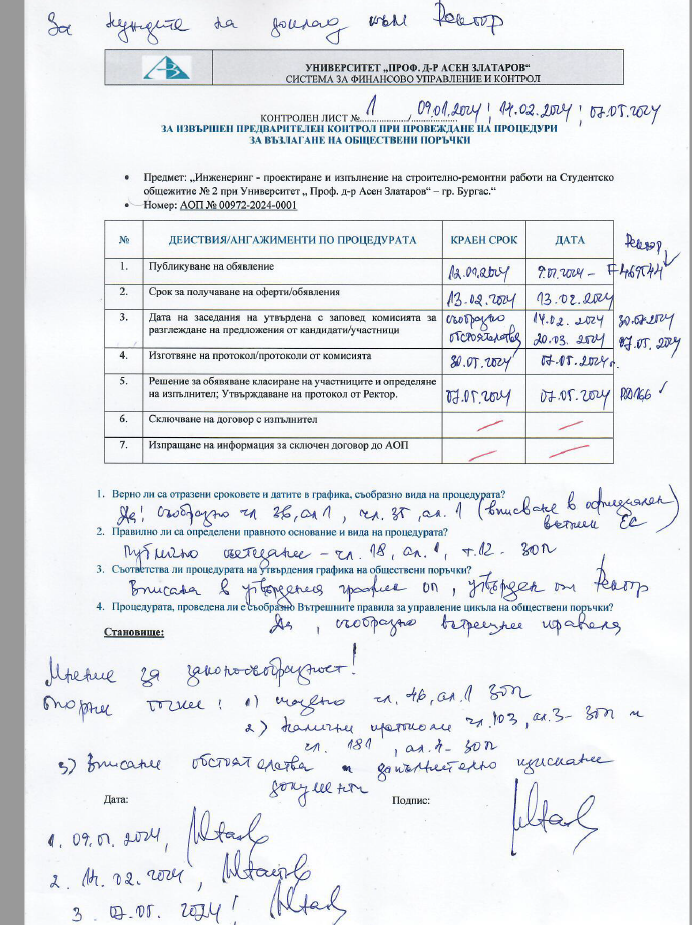 За нуждите на доклад към Ректор
УНИВЕРСИТЕТ „ПРОФ. Д-Р АСЕН ЗЛАТАРОВ“
СИСТЕМА ЗА ФИНАНСОВО УПРАВЛЕНИЕ И КОНТРОЛ
КОНТРОЛЕН ЛИСТ № 1, 09.01.2024; 14.02.2024; 07.05.2024
ЗА ИЗВЪРШЕН ПРЕДВАРИТЕЛЕН КОНТРОЛ ПРИ ПРОВЕЖДАНЕ НА ПРОЦЕДУРИ
ЗА ВЪЗЛАГАНЕ НА ОБЩЕСТВЕНИ ПОРЪЧКИ
• Предмет: „Инженеринг - проектиране и изпълнение на строително-ремонтни работи на Студентско
общежитие № 2 при Университет „ Проф. д-р Асен Златаров“ – гр. Бургас.“
• Номер: АОП № 00972-2024-0001
№ ДЕЙСТВИЯ/АНГАЖИМЕНТИ ПО ПРОЦЕДУРАТА КРАЕН СРОК ДАТА Ректор
1. Публикуване на обявление 12.01.2024 9.01.2024 – F469544
2. Срок за получаване на оферти/обявления 13.02.2024 13.02.2024
3. Дата на заседания на утвърдена с заповед комисията за съобразно 14.02.2024
разглеждане на предложения от кандидати/участници обстоятелства 20.03.2024 07.05.2024
4. Изготвяне на протокол/протоколи от комисията 30.05.2024 07.05.2024г.
5. Решение за обявяване класиране на участниците и определяне
на изпълнител; Утвърждаване на протокол от Ректор. 07.05.2024 07.05.2024
6. Сключване на договор с изпълнител
7. Изпращане на информация за сключен договор до АОП
1. Верно ли са отразени сроковете и датите в графика, съобразно вида на процедурата?
Да! Съобразно чл. 36, ал. 1, чл. 35, ал. 1 (вписване в официален
вестник ЕС)
2. Правилно ли са определени правното основание и вида на процедурата?
Публично състезание – чл. 18, ал. 1, т.12 - ЗОП
3. Съответства ли процедурата на утвърдения графика на обществени поръчки?
Вписана в утвърдения график ОП, утвърден от Ректор
4. Процедурата, проведена ли е съобразно Вътрешните правила за управление цикъла на обществени поръчки?
Да, съобразно вътрешните правила
Становище:
Мнение за законосъобразност!
Опорни точки: 1) съгласно чл. 46, ал.1 ЗОП
2) Налични протоколи чл. 103, ал.3 - ЗОП и
чл. 181, ал.4 - ЗОП
3) Вписани обстоятелства и допълнително изискани
документи
Дата: Подпис:
1. 09.01.2024,
2. 14.02.2024,
3. 07.05.2024!